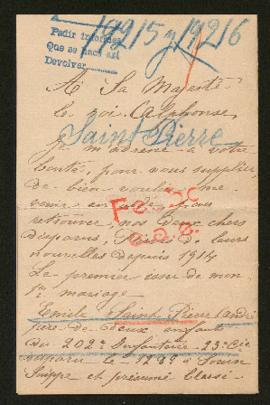 19215 y 19216
Pedir informes
Que se hace así
Devolver
A Sa Majesté
le roi Alphonse
Saint Pierre
je m'adresse à votre
bonté, pour vous supplier
de bien vouloir me
venir en aide pour
retrouver, nos deux chers
disparus, de leurs
nouvelles depuis 1914
Le premier issu de mon
1er mariage.
Emile Saint Pierre
père de deux enfants
du 202e Infanterie 23e Cie
disparu le à Souain
Suippe et présumé blessé